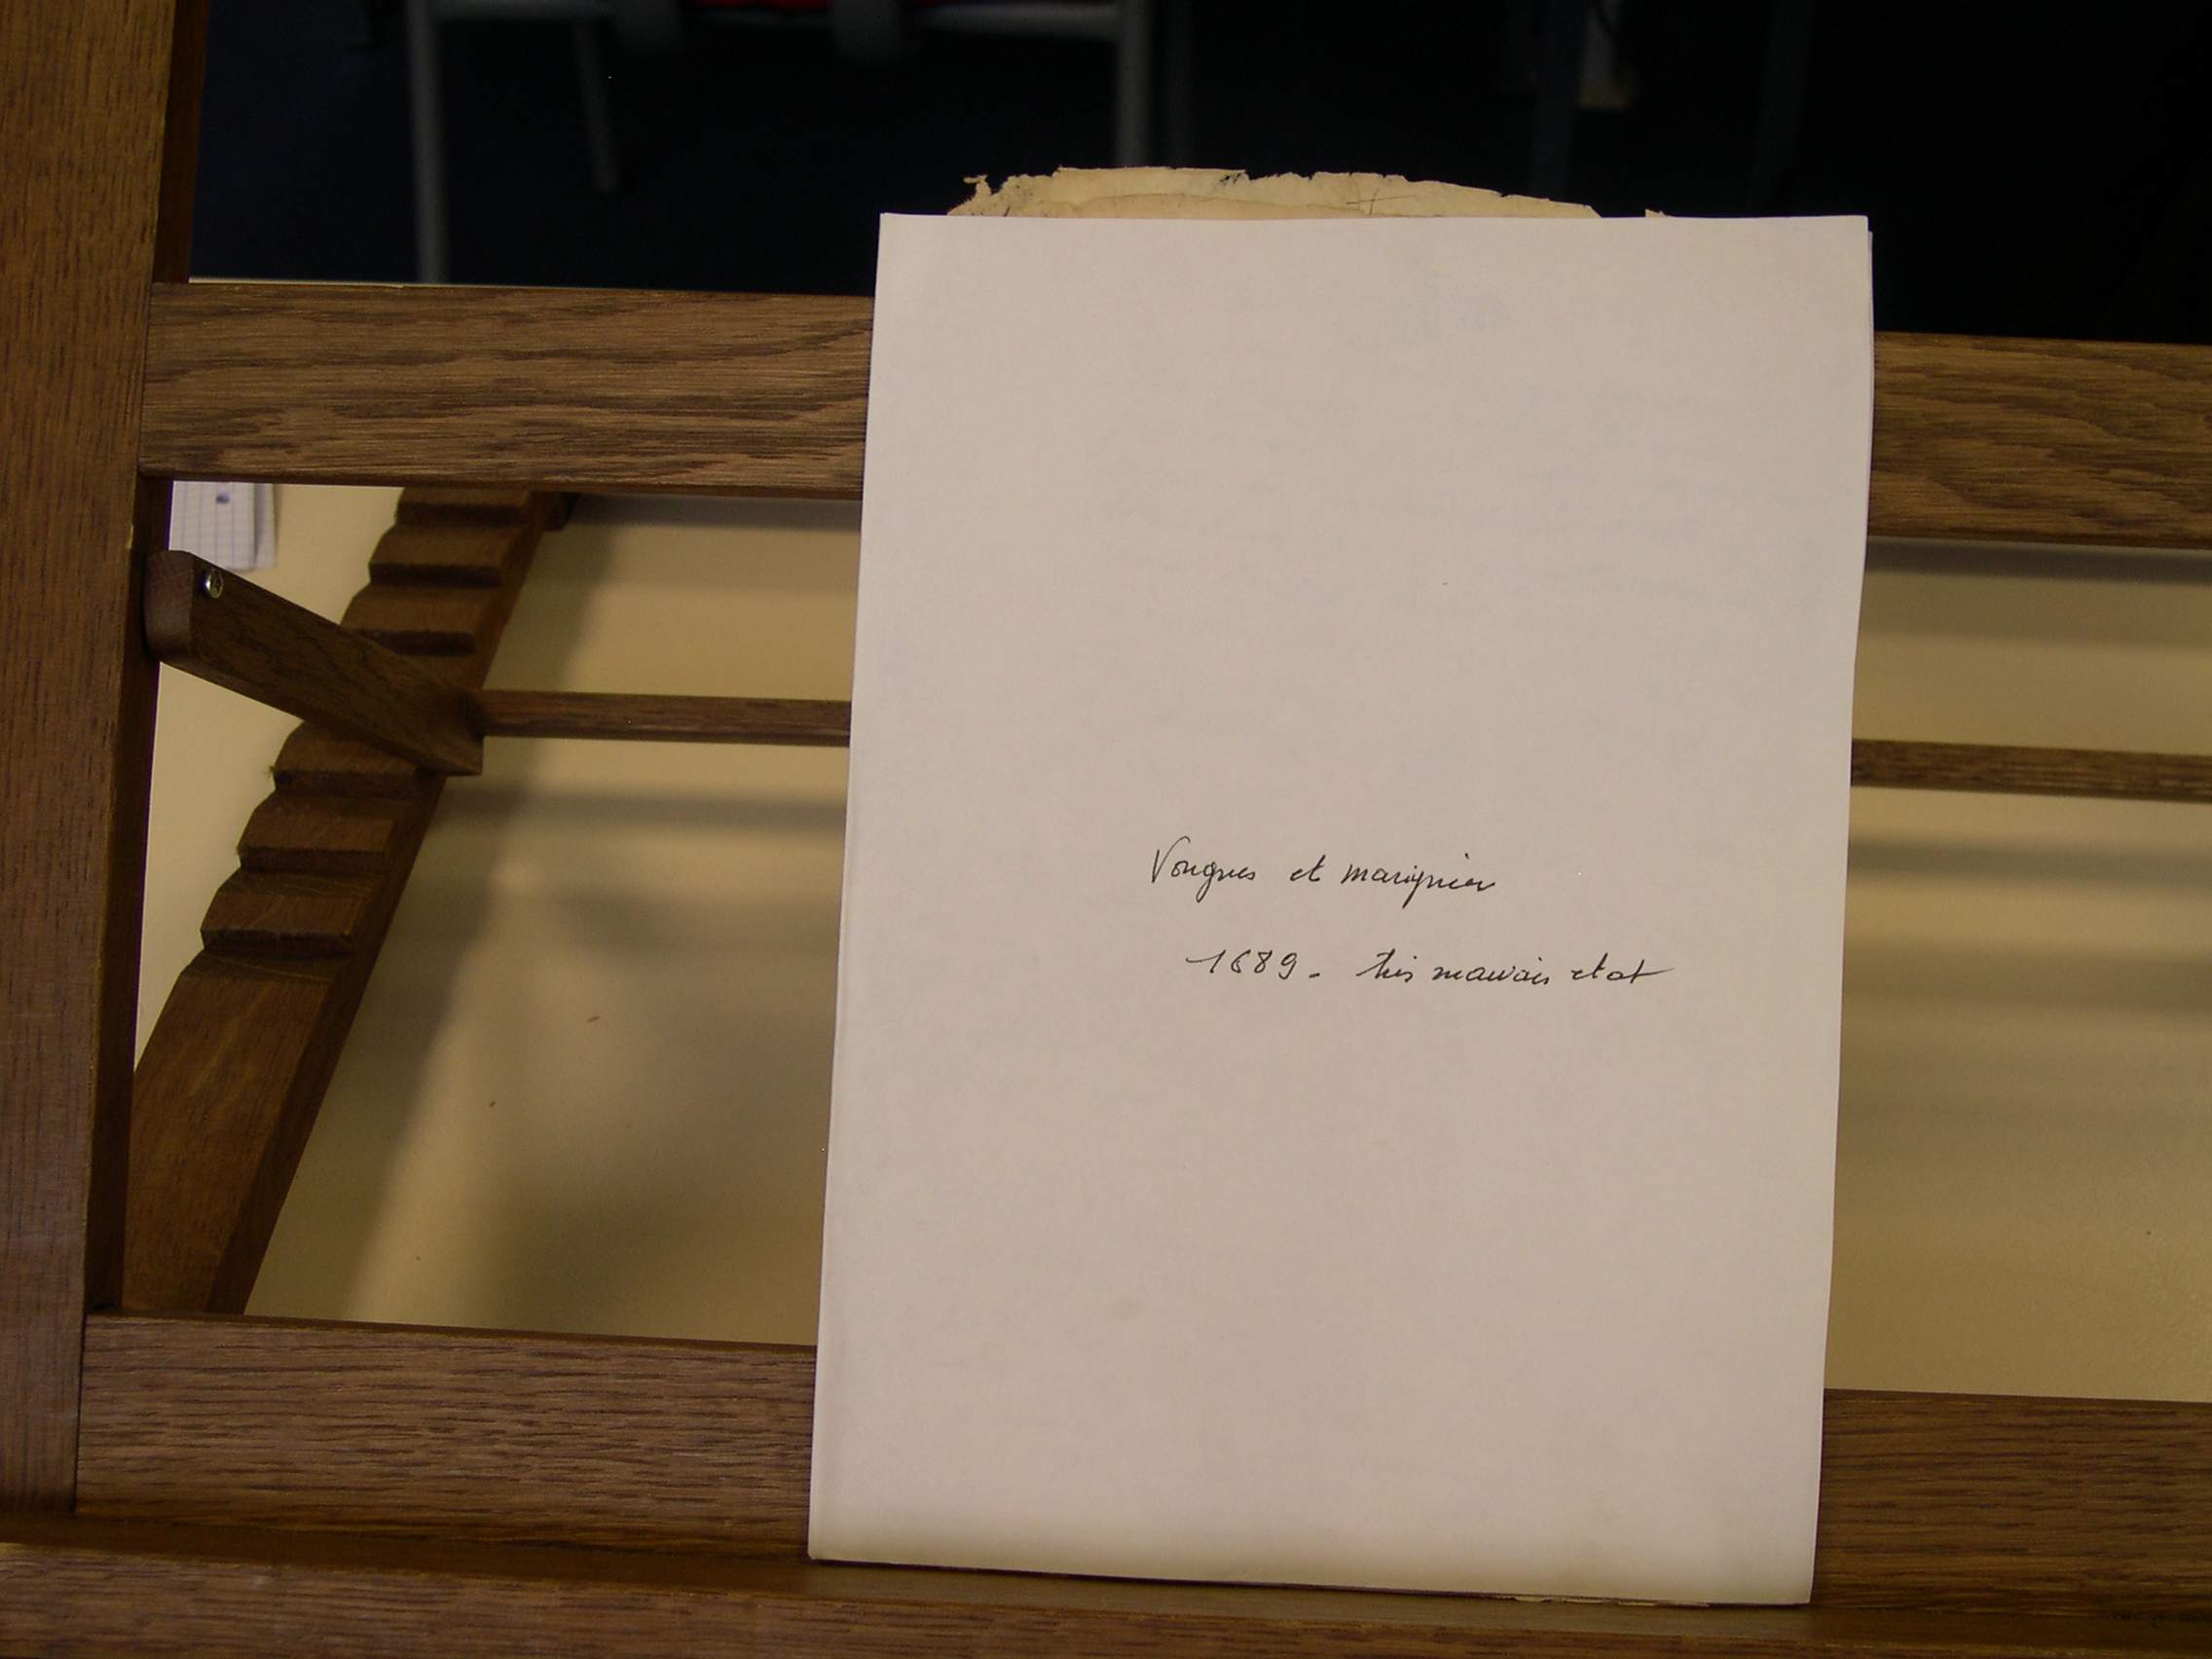 Vougnes et marignier
1689 - très mauvais etat